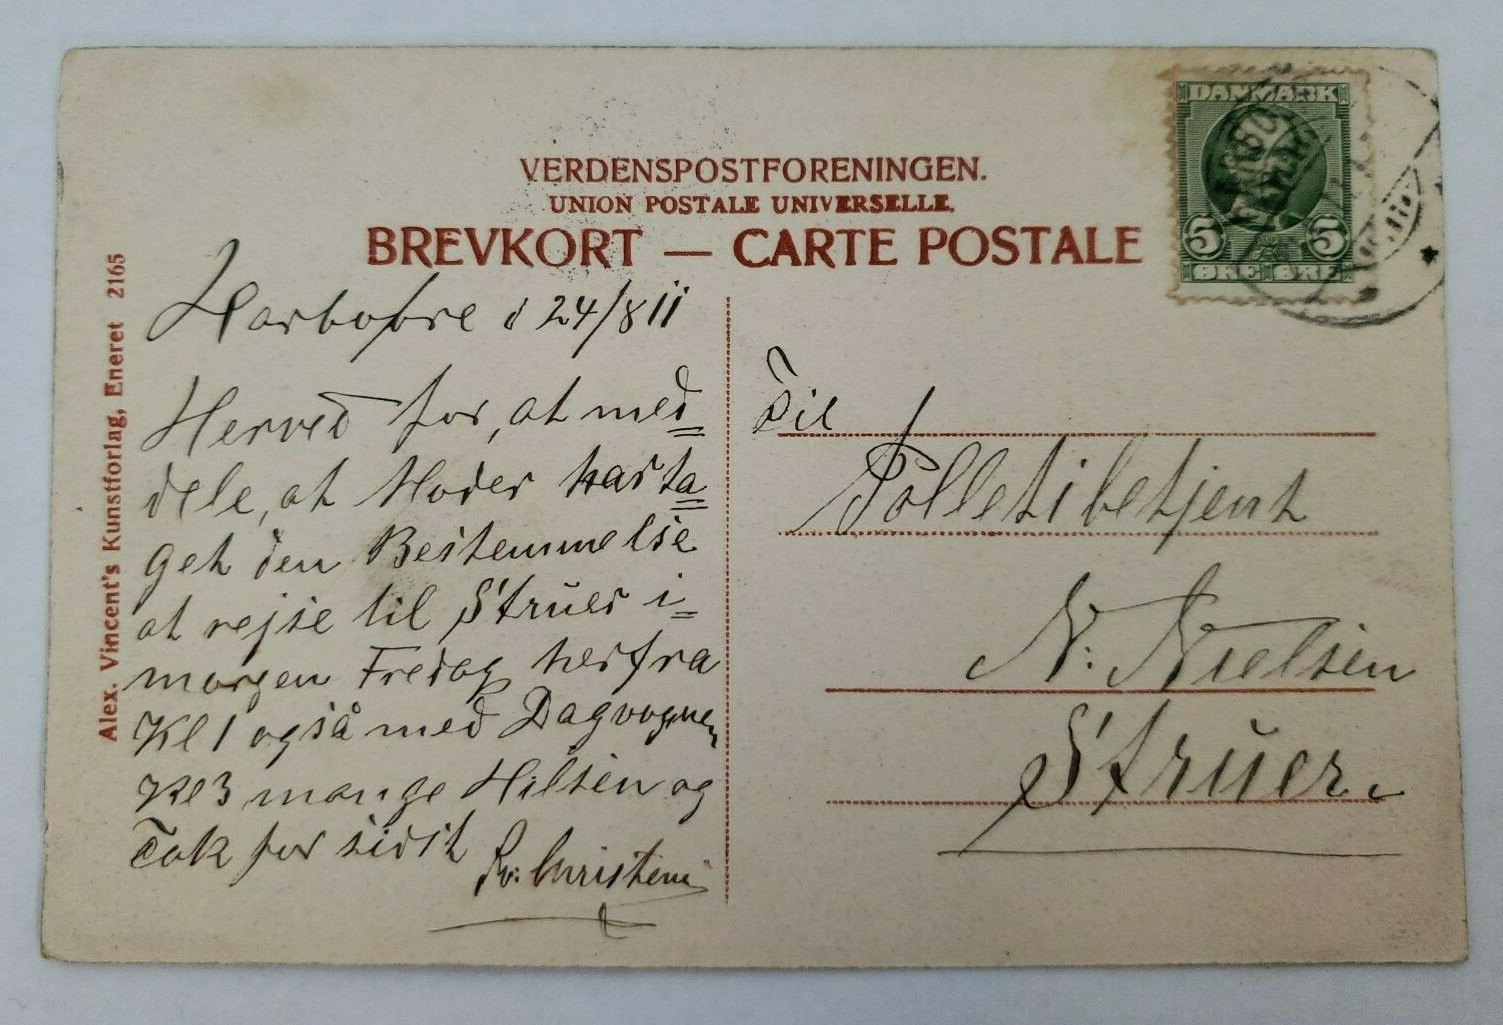 VERDENSPOSTFORENINGEN.
UNION POSTALE UNIVERSELLE.
BREVKORT — CARTE POSTALE
DANMARK
5 5
ØRE ØRE
Alex. Vincent's Kunstforlag, Eneret 2165
Harboøre d 24/8 11
Herved for, at med=
dele, at Moder har ta=
get den Bestemmelse
at rejse til Struer i=
morgen Fredag herfra
Kl 1 også med Dagvognen
Kl 3 mange Hilsen og
Tak for sidst
Christensen
Til
Polletibetjent
N. Nielsen
Struer.